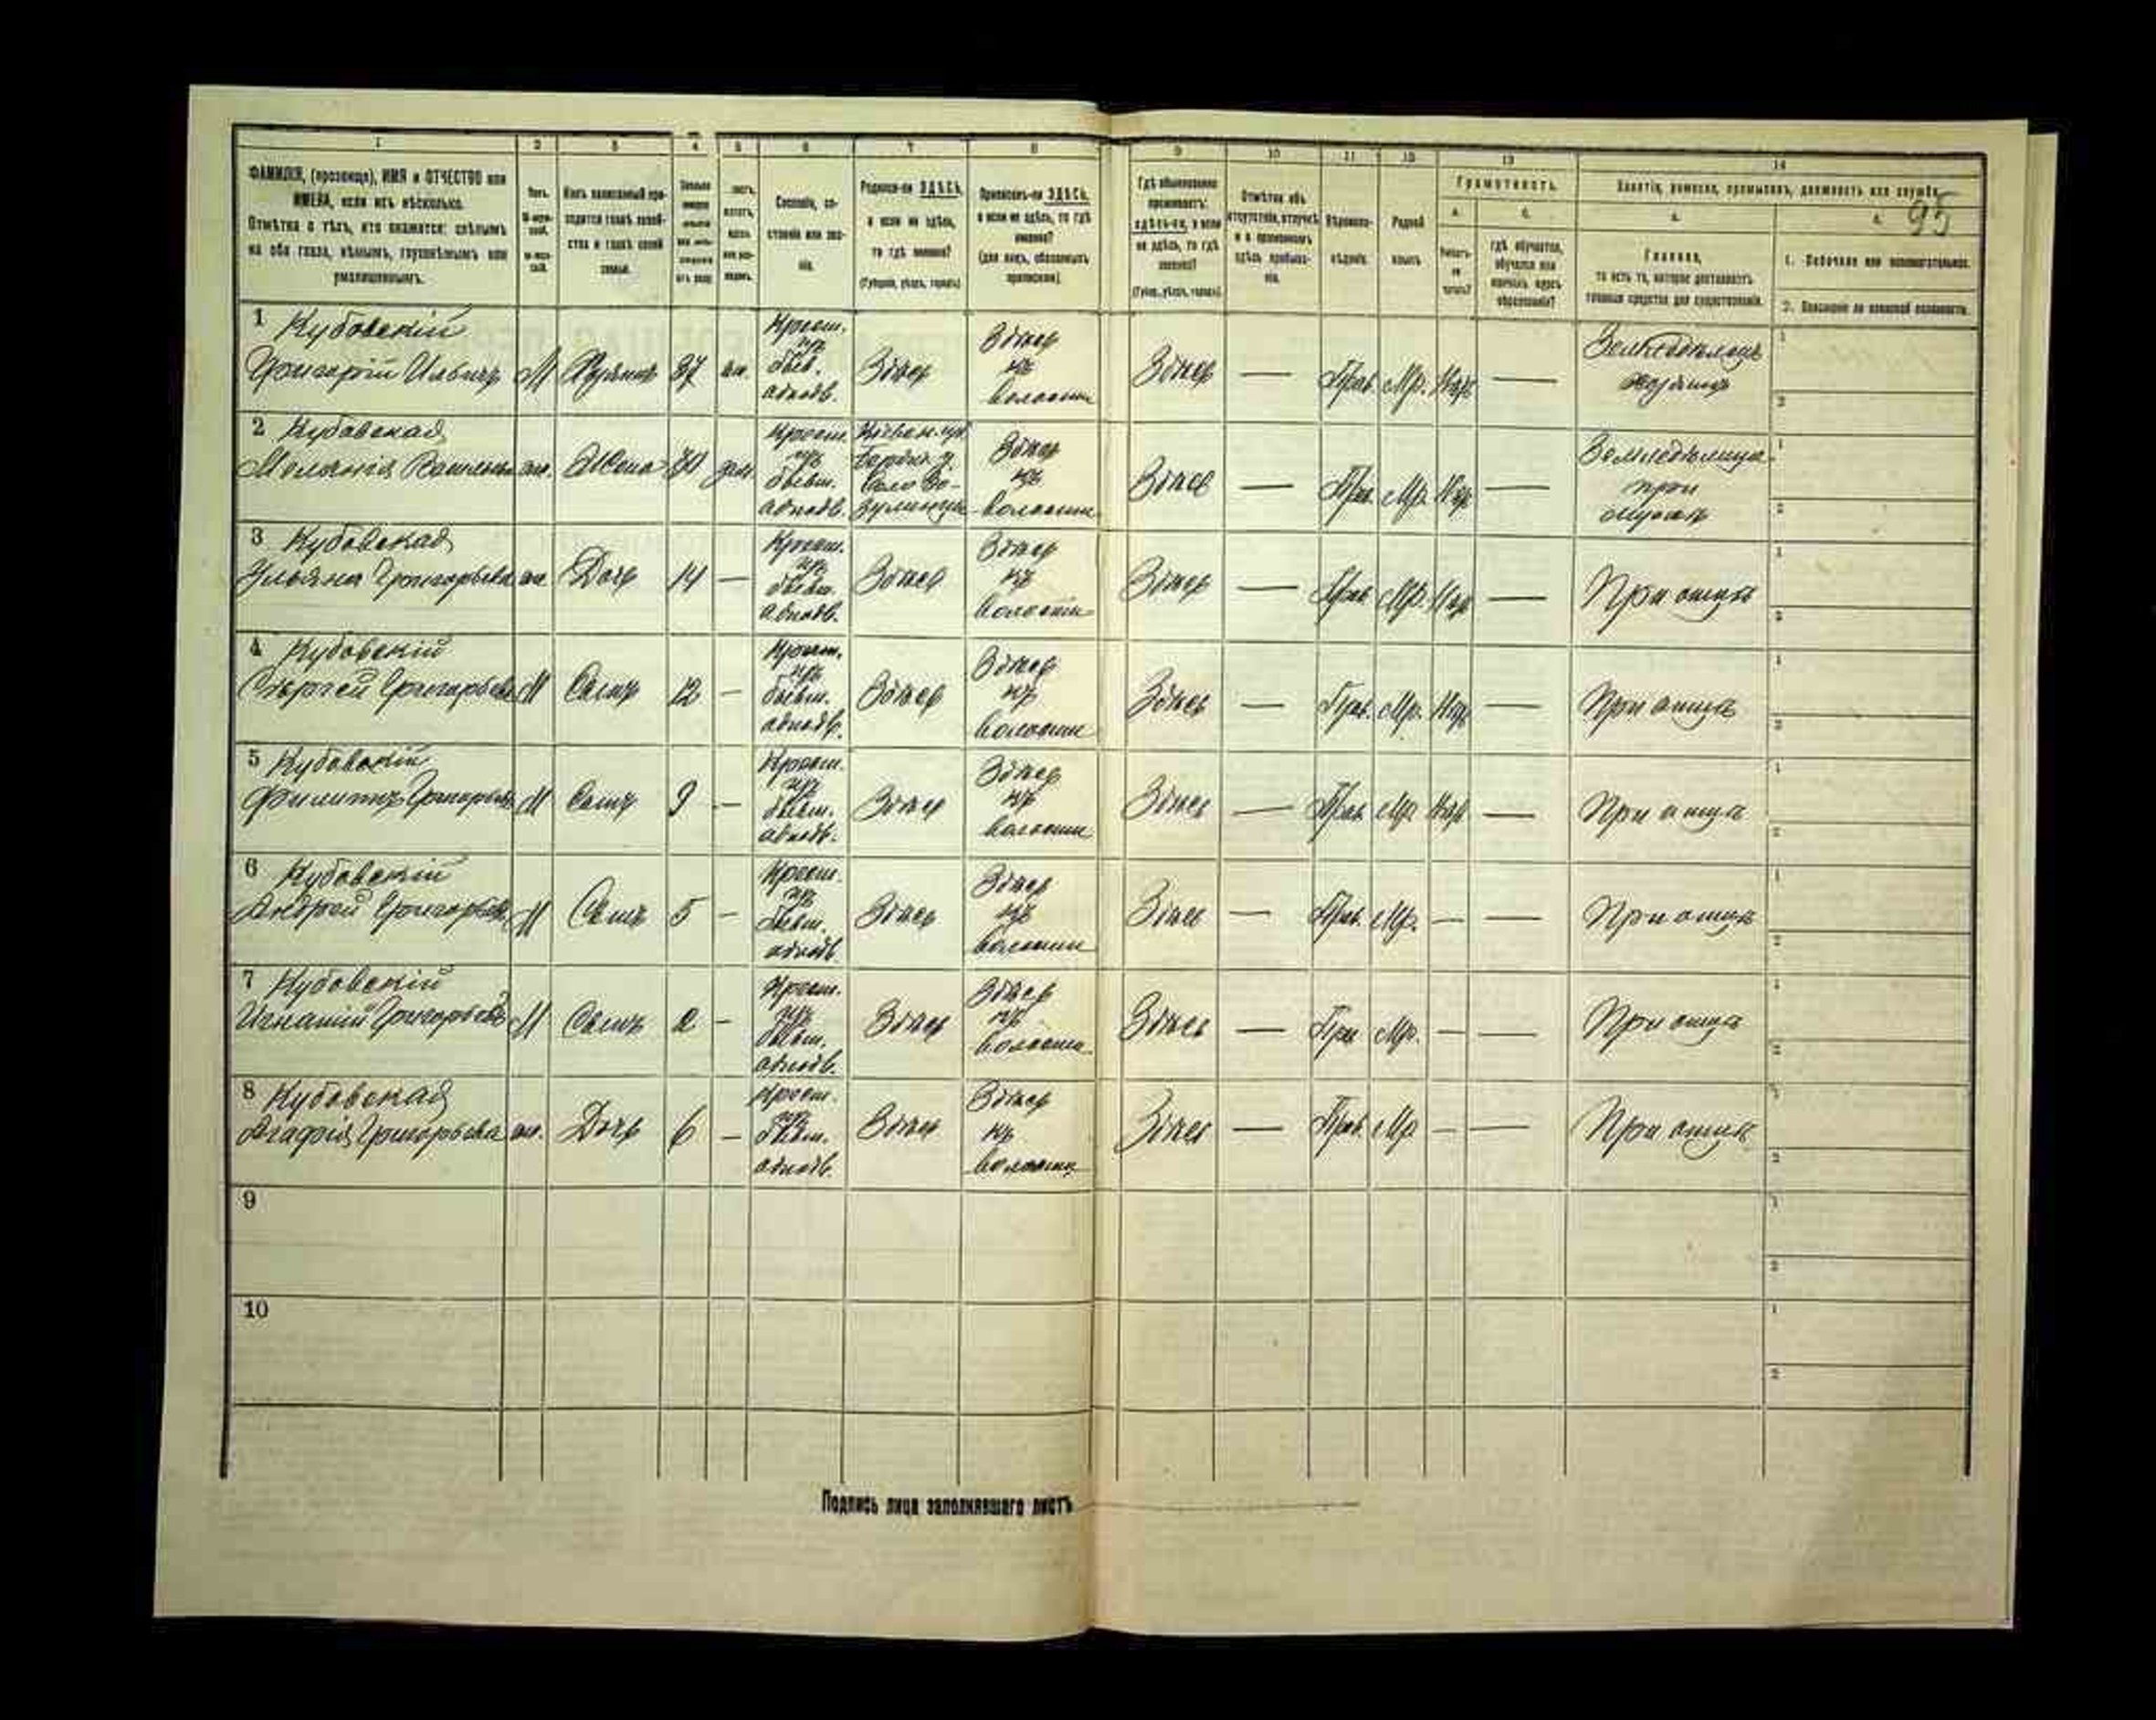 1 2 3 4 5 6 7 8 9 10 11 12 13 14
ФАМИЛІЯ, (прозвище), ИМЯ и ОТЧЕСТВО или
ИМЕНА, если ихъ нѣсколько.
Отмѣтка о тѣхъ, кто окажется: слѣпымъ
на оба глаза, нѣмымъ, глухонѣмымъ или
умалишеннымъ.
Полъ.
Сословіе, со-
стояніе или зва-
ніе.
Родился-ли ЗДѢСЬ,
а если не здѣсь,
то гдѣ именно?
(Губернія, уѣздъ, городъ)
Приписанъ-ли ЗДѢСЬ,
а если не здѣсь, то гдѣ
именно?
(для лицъ, обязанныхъ
припискою)
Гдѣ обыкновенно
проживаетъ:
здѣсь-ли, а если
не здѣсь, то гдѣ
именно?
(Губер., уѣздъ, городъ)
Отмѣтка объ
отсутствіи, отлучкѣ
и о временномъ
здѣсь пребыва-
ніи.
Вѣроиспо-
вѣданіе.
Родной
языкъ.
Грамотность.
а. б.
гдѣ обучается,
обучался или
кончилъ курсъ
образованія?
Занятіе, ремесло, промыселъ, должность или служба.
95
Главное,
то есть то, которое доставляетъ
главныя средства для существованія.
1. Побочное или вспомогательное.
2. Положеніе по воинской повинности.
1 Кубовскій
Григорій Ильичъ М Хозяинъ 37 жн.
Крест. изъ бывш. однодв. Здѣсь Здѣсь къ волости
Здѣсь — Прав. Мр. Нѣтъ — Земледѣлецъ хозяинъ
2 Кубовская
Меланія ж. Жена зам.
Крест. изъ бывш. однодв. Кіевск. губ. Бердич. у. село Здѣсь къ волости
Здѣсь — Прав. Мр. Нѣтъ — Земледѣлица при
3 Кубовская
Ульяна Григорьевна ж. Дочь 14 —
Крест. изъ бывш. однодв. Здѣсь Здѣсь къ волости
Здѣсь — Прав. Мр. Нѣтъ — При отцѣ
4 Кубовскій
Сергѣй Григорьевъ М Сынъ 12 —
Крест. изъ бывш. однодв. Здѣсь Здѣсь къ волости
Здѣсь — Прав. Мр. Нѣтъ — При отцѣ
5 Кубовскій
Филиппъ Григорьевъ М Сынъ 9 —
Крест. изъ бывш. однодв. Здѣсь Здѣсь къ волости
Здѣсь — Прав. Мр. Нѣтъ — При отцѣ
6 Кубовскій
Андрей Григорьевъ М Сынъ 5 —
Крест. изъ бывш. однодв. Здѣсь Здѣсь къ волости
Здѣсь — Прав. Мр. — — При отцѣ
7 Кубовскій
Игнатій Григорьевъ М Сынъ 2 —
Крест. изъ бывш. однодв. Здѣсь Здѣсь къ волости
Здѣсь — Прав. Мр. — — При отцѣ
8 Кубовская
Агафія Григорьевна ж. Дочь 6 —
Крест. изъ бывш. однодв. Здѣсь Здѣсь къ волости
Здѣсь — Прав. Мр — — При отцѣ
9
10
Подпись лица заполнявшаго листъ